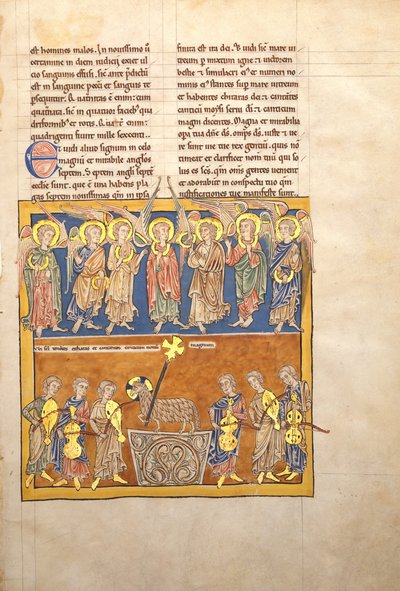 est homines malos. In nouissimo ũ
certamine in diem iudicii exiet ul
cio sanguinis effusi. sic ante p̃dictũ
est in sanguine peccati et sanguis te
persequetur. e enim: cum
quatuor. sic in quatuor facieb; qua
driformib; et rotis. e enim:
quadringenti fiunt mille sexcenti.
Et uidi aliud signum in celo
magnũ et mirabile anglos
septem. septem angli septem
ecclie sunt. que ẽ una habens pla
gas septem nouissimas qm̃ in ipsa
finita est ira dei. Et uidi sic mare ui
treum p mixtum igne et uictorem
bestie et simulacri ei; et numeri no
minis ei; stantes sup mare uitreum
et habentes citharas dei et cantantes
canticũ moysi serui di et canticum
agni dicentes. Magna et mirabilia
opa tua dñe ds. omps. iuste et ue
re sunt uie tue rex gentiũ. quis nõ
timeat et clarificet nom tuũ qui so
lus es scs. qm̃ oms gentes uenient
et adorabunt in conspectu tuo qm̃
iustificationes tue manifeste sunt.
citharas et canticum magnum